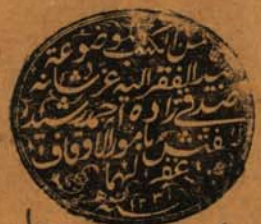 من الكتب موضوعة
عبد الفقير اليه عز شانه
صدقي زاده احمد رشيد
المفتش بامور الاوقاف
غفر لهما